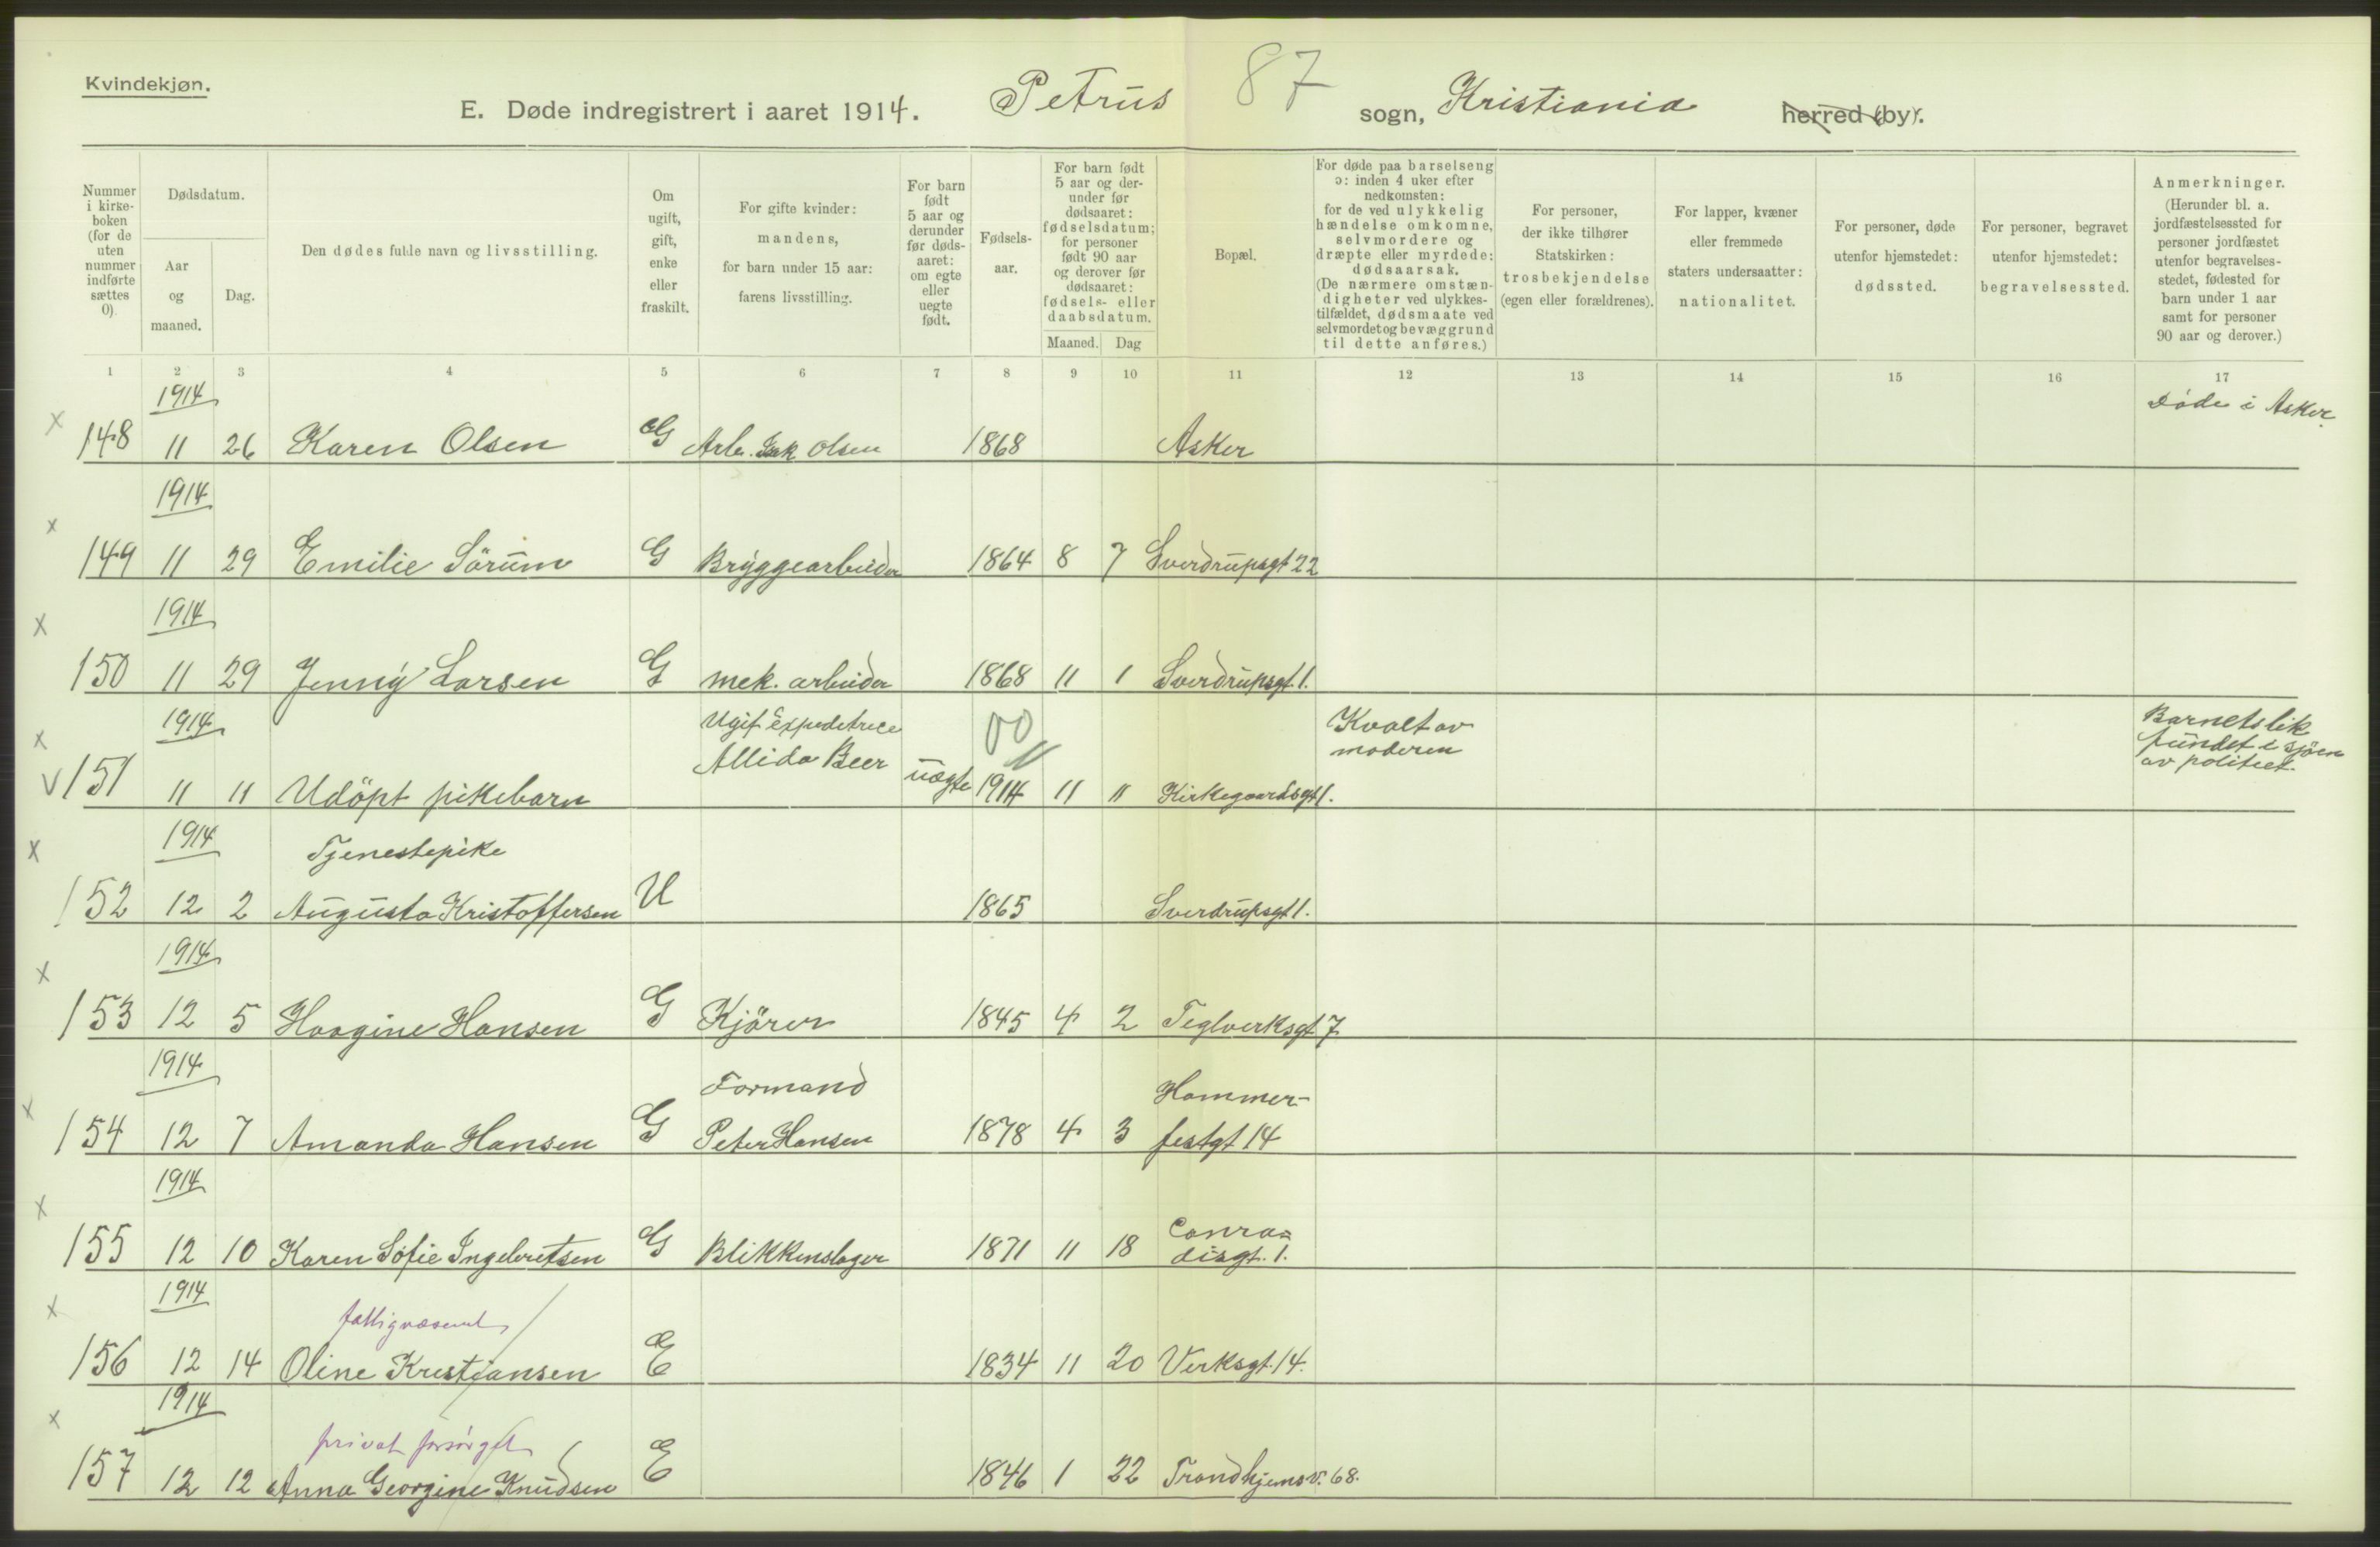 Kvindekjøn.
E. Døde indregistrert i aaret 1914. Petrus sogn, Kristiania herred (by).
87
Nummer i kirke-boken (for de uten nummer indførte sættes 0).
Dødsdatum.
Aar og maaned.
Dag.
Den dødes fulde navn og livsstilling.
Om ugift, gift, enke eller fraskilt.
For gifte kvinder: mandens, for barn under 15 aar: farens livsstilling.
For barn født 5 aar og derunder før døds-aaret: om egte eller uegte født.
Fødsels-aar.
For barn født 5 aar og der-under før dødsaaret: fødselsdatum; for personer født 90 aar og derover før dødsaaret: fødsels- eller daabsdatum.
Maaned. Dag
Bopæl.
For døde paa barselseng ɔ: inden 4 uker efter nedkomsten: for de ved ulykkelig hændelse omkomne, selvmordere og dræpte eller myrdede: dødsaarsak. (De nærmere omstæn-digheter ved ulykkes-tilfældet, dødsmaate ved selvmordet og bevæggrund til dette anføres.)
For personer, der ikke tilhører Statskirken: trosbekjendelse (egen eller forældrenes).
For lapper, kvæner eller fremmede staters undersaatter: nationalitet.
For personer, døde utenfor hjemstedet: dødssted.
For personer, begravet utenfor hjemstedet: begravelsessted.
Anmerkninger. (Herunder bl. a. jordfæstelsessted for personer jordfæstet utenfor begravelses-stedet, fødested for barn under 1 aar samt for personer 90 aar og derover.)
1 2 3 4 5 6 7 8 9 10 11 12 13 14 15 16 17
1914 Døde i Asker
x 148 11 26 Karen Olsen G Arb. Olsen 1868 Asker
1914
x 149 11 29 Emilie Sörum G Bryggearbeider 1864 8 7 Sverdrupsgt 22
1914
x 150 11 29 Jenny Larsen G mek. arbeider 1868 11 1 Sverdrupsgt. 1.
1914 Ugif. expeditrice 00 Kvalt av Barnets lik
x Allida Beer moderen fundet i sjöen
av politiet.
V 151 11 11 Udöpt pikebarn uægte 1914 11 11 Kirkegaardsgt 1.
1914 Tjenestepike
x 152 12 2 Augusta Kristoffersen U 1865 Sverdrupsgt 1.
1914
x 153 12 5 Haagine Hansen G Kjörer 1845 4 2 Teglverksgt 7
1914 Formand Hammer-
x 154 12 7 Amanda Hansen G Peter Hansen 1878 4 3 festgt 14
1914 Conra=
x 155 12 10 Karen Sofie Ingebretsen G Blikkenslager 1871 11 18 disgt. 1.
1914 fattigvæsenet
x 156 12 14 Oline Kristiansen E 1834 11 20 Verksgt. 14.
1914 privat forsörget
x 157 12 12 Anna Georgine Knudsen E 1846 1 22 Trondhjemsv. 68.